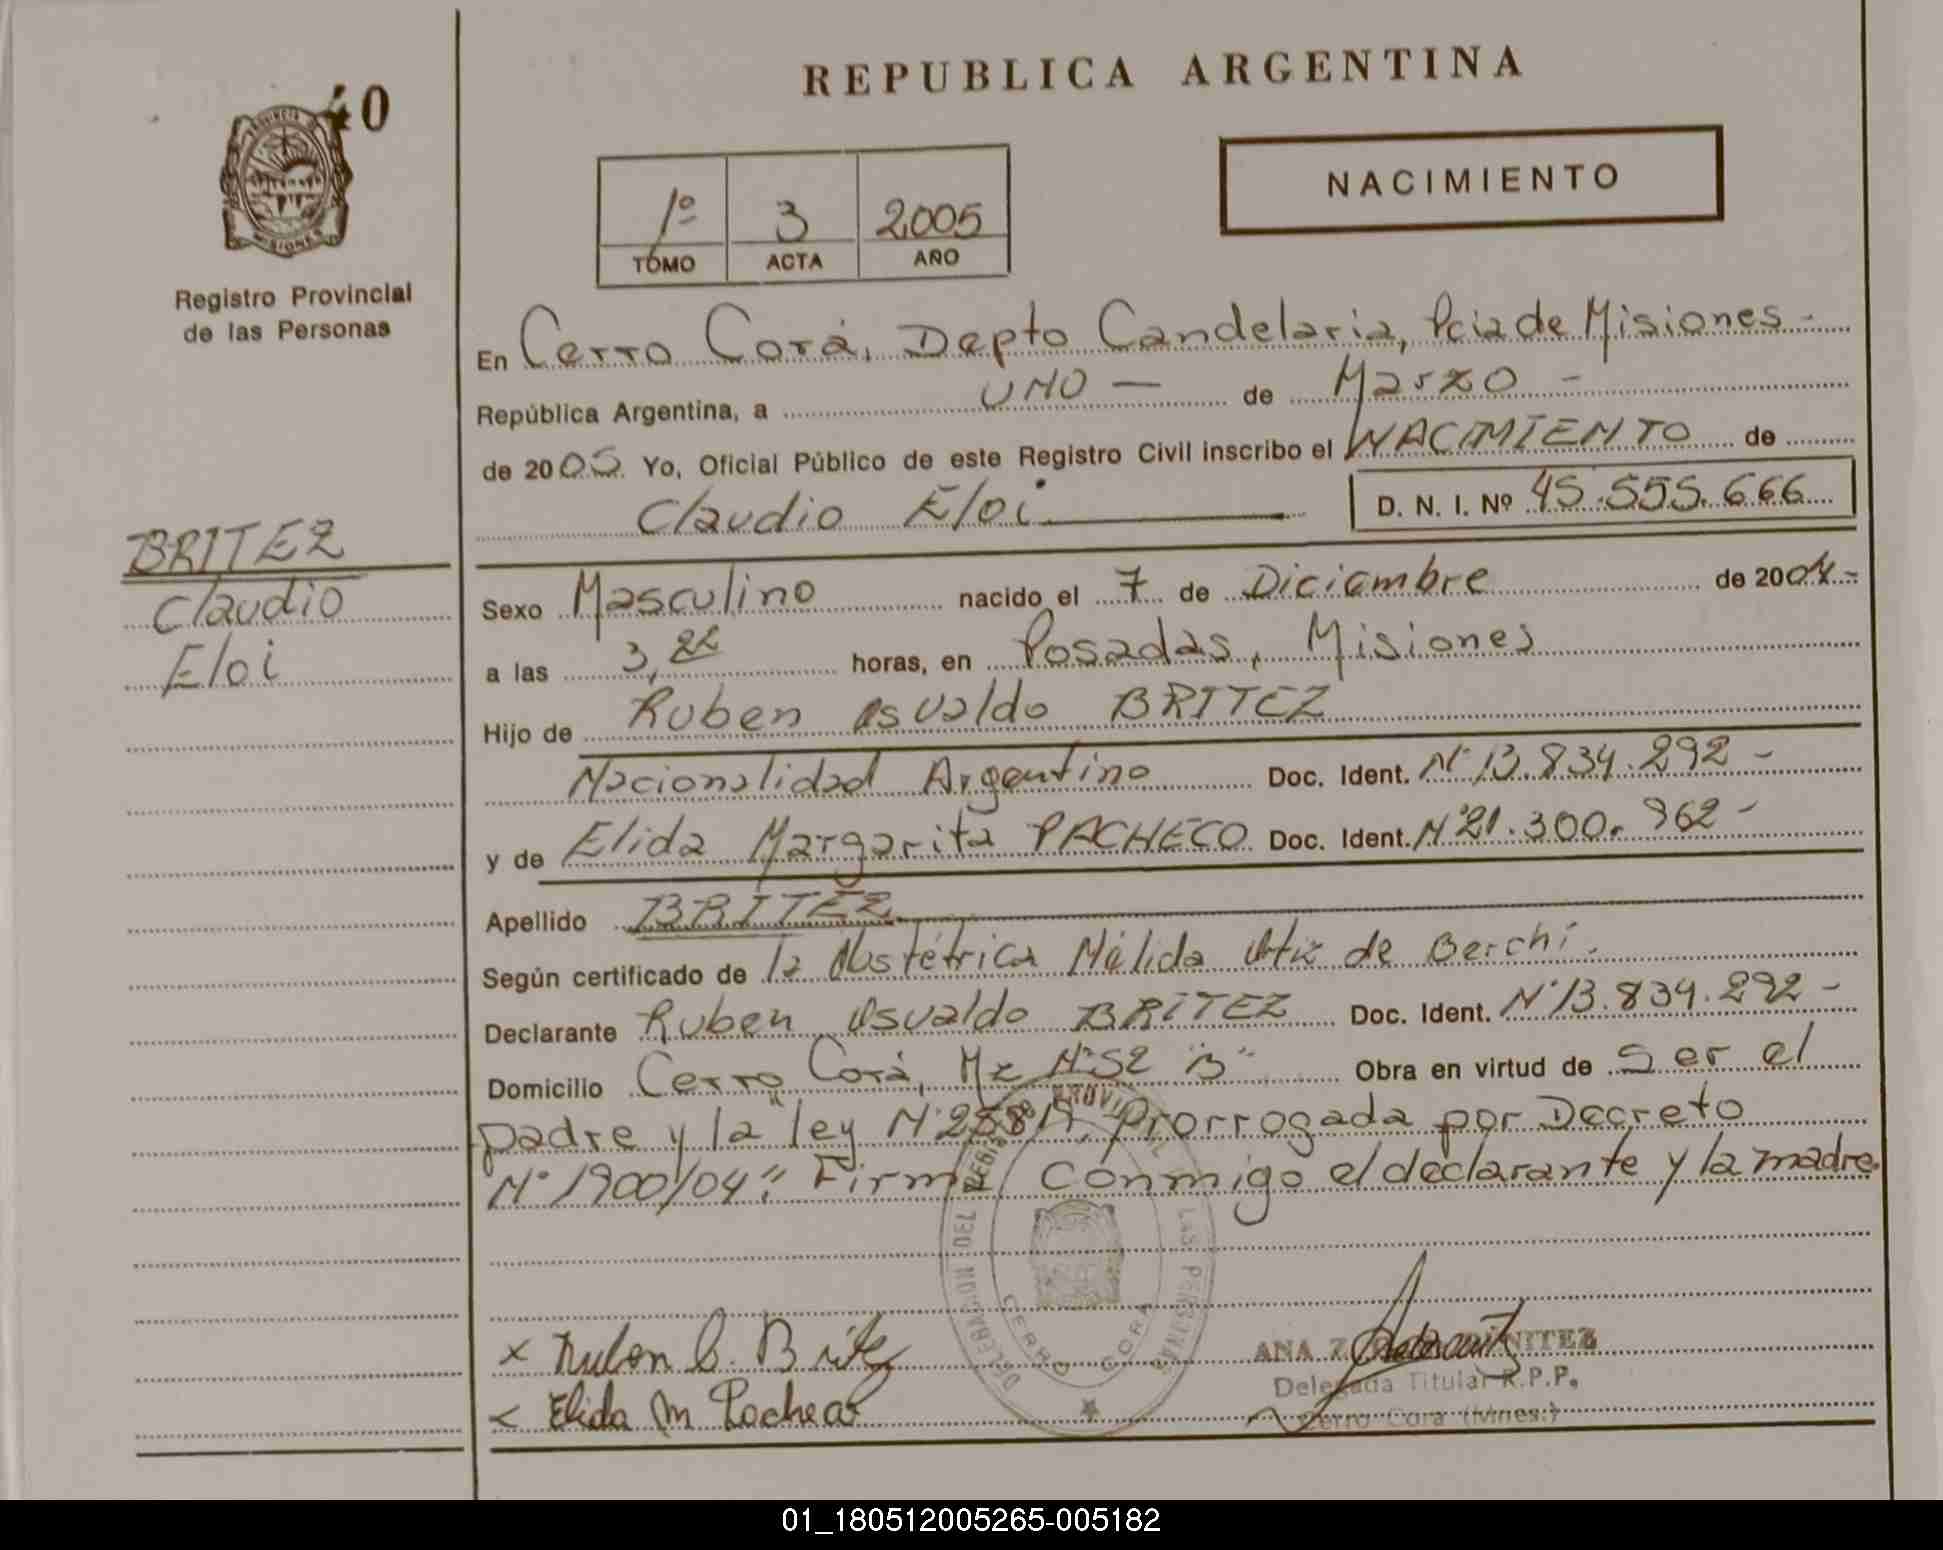 REPUBLICA ARGENTINA
40
NACIMIENTO
1º 3 2005
TOMO ACTA AÑO
PROVINCIA DE
MISIONES
Registro Provincial
de las Personas
En Cerro Corá, Depto Candelaria, Pcia de Misiones -
República Argentina, a UNO — de Marzo -
de 2005 Yo, Oficial Público de este Registro Civil inscribo el NACIMIENTO de
Claudio Eloi D. N. I. Nº 45.555.666
BRITEZ
Claudio
Eloi
Sexo Masculino nacido el 7 de Diciembre de 2004-
a las 3, horas, en Posadas, Misiones
Hijo de Ruben Osvaldo BRITEZ
Nacionalidad Argentino Doc. Ident. Nº 13.834.292 -
y de Elida Margarita PACHECO Doc. Ident. Nº 21.300.962 -
Apellido BRITEZ
Según certificado de la Obstétrica Nélida de Berchi.
Declarante Ruben Osvaldo BRITEZ Doc. Ident. Nº 13.834.292 -
Domicilio Cerro Corá, Mz Nº 52 "B" Obra en virtud de Ser el
padre y la "ley Nº 25819, Prorrogada por Decreto
Nº 1900/04". Firma conmigo el declarante y la madre.
DELEGACION DEL REGISTRO PROVINCIAL LAS PERSONAS
CERRO CORA
x Ruben O. Britez
x Elida M Pacheco
ANA BENITEZ
Delegada Titular R.P.P.
Cerro Cora (Mnes.)
01_180512005265-005182